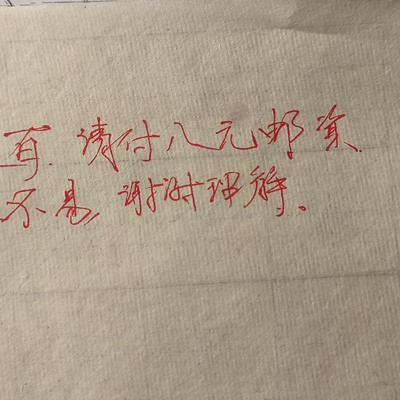 请付八元邮资
不易,谢谢理解。